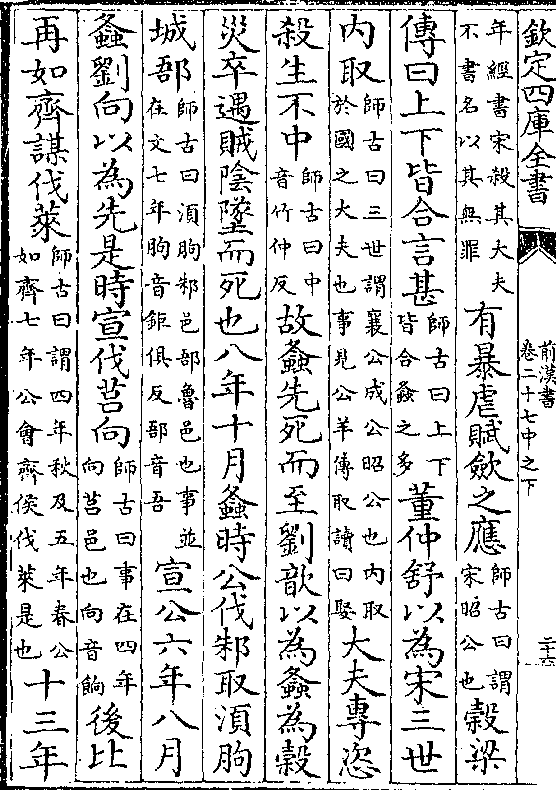 欽定四庫全書
前漢書
卷二十七中之下
二十六
年經書宋殺其大夫
不書名以其無罪
有暴虐賦斂之應
師古曰謂
宋昭公也
穀梁
傳曰上下皆合言甚
師古曰上下
皆合螽之多
董仲舒以為宋三世
內取
師古曰三世謂襄公成公昭公也內取
於國之大夫也事見公羊傳取讀曰娶
大夫專恣
殺生不中
師古曰中
音竹仲反
故螽先死而至劉歆以為螽為穀
災卒遇賊陰墜而死也八年十月螽時公伐邾取須朐
城郚
師古曰須朐邾邑郚魯邑也事並
在文七年朐音鉅俱反郚音吾
宣公六年八月
螽劉向以為先是時宣伐莒向
師古曰事在四年
向莒邑也向音餉
後比
再如齊謀伐萊
師古曰謂四年秋及五年春公
如齊七年公會齊侯伐萊是也
十三年